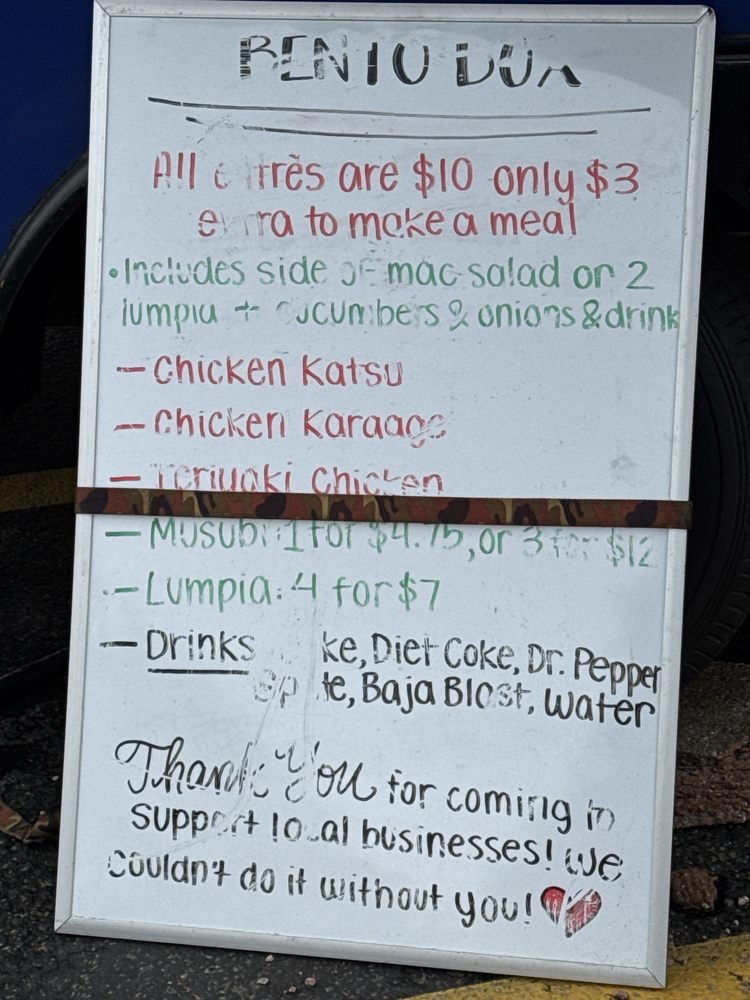 BENTO BOX
All entrès are $10 only $3
extra to make a meal
•Includes side of mac salad or 2
lumpia + cucumbers & onions & drink
— Chicken Katsu
— Chicken Karaage
— Teriyaki Chicken
— Musubi: 1 for $4.75, or 3 for $12
— Lumpia: 4 for $7
— Drinks Coke, Diet Coke, Dr. Pepper
Sprite, Baja Blast, Water
Thank You for coming in
support local businesses! We
couldn't do it without you!